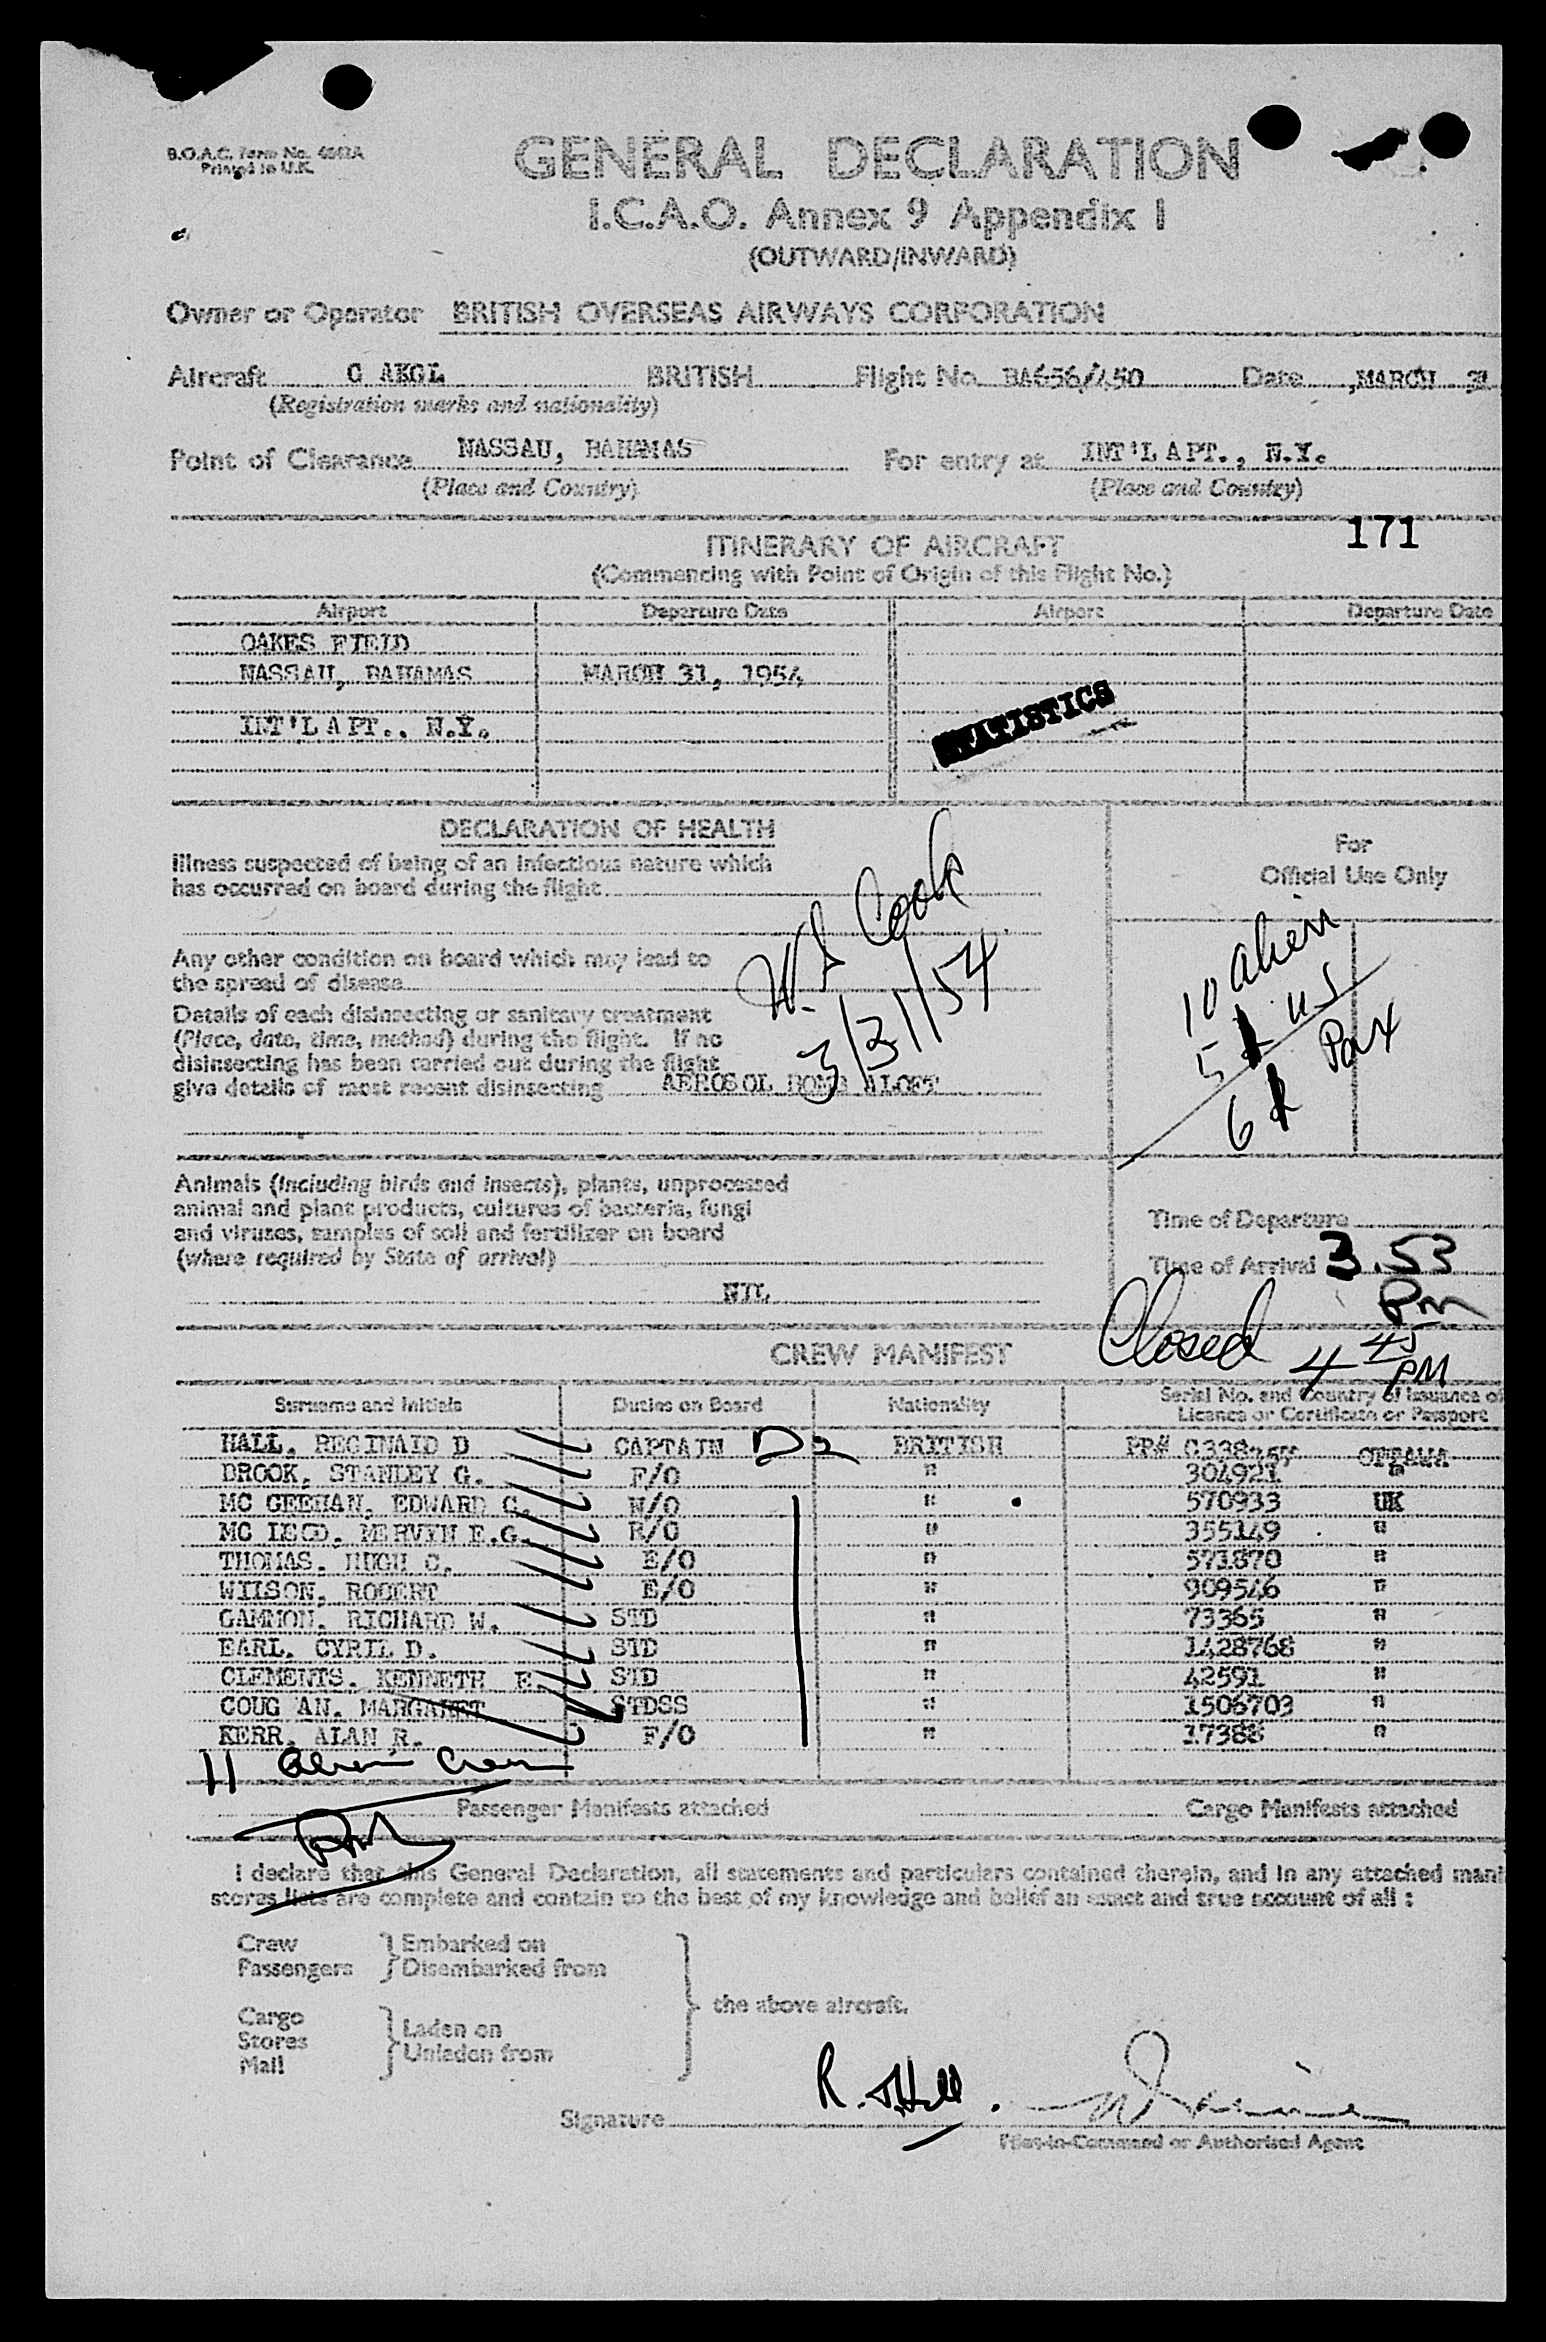 B.O.A.C. Form No. 4642A
Printed in U.K.
GENERAL DECLARATION
I.C.A.O. Annex 9 Appendix I
(OUTWARD/INWARD)
Owner or Operator BRITISH OVERSEAS AIRWAYS CORPORATION
Aircraft G AKGL BRITISH Flight No. BA656/450 Date MARCH 31
(Registration marks and nationality)
Point of Clearance NASSAU, BAHAMAS For entry at INT'L APT., N.Y.
(Place and Country) (Place and Country)
171
ITINERARY OF AIRCRAFT
(Commencing with Point of Origin of this Flight No.)
Airport Departure Date Airport Departure Date
OAKES FIELD
NASSAU, BAHAMAS MARCH 31, 1954
STATISTICS
INT'L APT., N.Y.
DECLARATION OF HEALTH
For
Official Use Only
Illness suspected of being of an infectious nature which
has occurred on board during the flight
W. S Cook
3/31/54
10 alien
5 US
Pax
6
Any other condition on board which may lead to
the spread of disease
Details of each disinsecting or sanitary treatment
(Place, date, time, method) during the flight. If no
disinsecting has been carried out during the flight
give details of most recent disinsecting AEROSOL BOMB ALOFT
Animals (including birds and insects), plants, unprocessed
animal and plant products, cultures of bacteria, fungi
and viruses, samples of soil and fertilizer on board
(where required by State of arrival)
NIL
Time of Departure
Time of Arrival 3.53
Pm
Closed 4 45 PM
CREW MANIFEST
Surname and Initials Duties on Board Nationality Serial No. and Country of Issuance of
Licence or Certificate or Passport
HALL, REGINALD D CAPTAIN BRITISH PP# OTTAWA
BROOK, STANLEY G. F/O " 304921 "
MC GEEHAN, EDWARD G. N/O " 570933 UK
MC LEOD, MERVYN E.G. R/O " 355149 "
THOMAS, HUGH C. E/O " 571870 "
WILSON, ROBERT E/O " 909546 "
GAMMON, RICHARD W. STD " 73365 "
EARL, CYRIL D. STD " 1428768 "
CLEMENTS, KENNETH E STD " 42591 "
COUG AN, MARGARET STDSS " 1506703 "
KERR, ALAN R. F/O " 17388 "
11 Alien Crew
Passenger Manifests attached Cargo Manifests attached
I declare that this General Declaration, all statements and particulars contained therein, and in any attached mani
stores lists are complete and contain to the best of my knowledge and belief an exact and true account of all :
Crew Embarked on
Passengers Disembarked from
the above aircraft.
Cargo
Stores Laden on
Mail Unladen from
Signature R. Hall
Pilot-in-Command or Authorised Agent